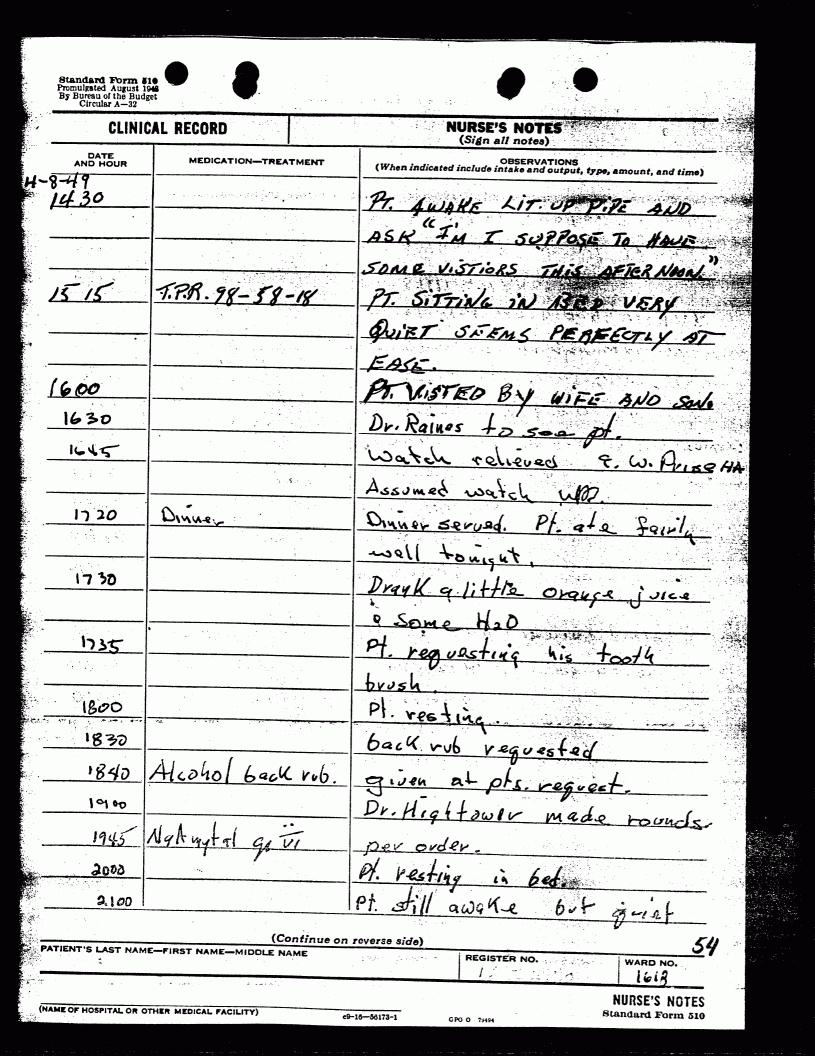 Standard Form 510
Promulgated August 1948
By Bureau of the Budget
Circular A—32
CLINICAL RECORD
NURSE'S NOTES
(Sign all notes)
DATE
AND HOUR
MEDICATION—TREATMENT
OBSERVATIONS
(When indicated include intake and output, type, amount, and time)
4-8-49
1430 PT. AWAKE LIT. UP PIPE AND
ASK "I'M I SUPPOSE TO HAVE
SOME VISTIORS THIS AFTERNOON"
1515 T.P.R. 98-58-18 PT. SITTING IN BED VERY
QUIET SEEMS PERFECTLY AT
EASE.
1600 PT. VISTED BY WIFE AND SON.
1630 Dr. Raines to see pt.
1645 Watch relieved E. W. Prise HA
Assumed watch
1720 Dinner Dinner served. Pt. ate fairly
well tonight.
1730 Drank a little orange juice
& some H2O
1735 Pt. requesting his tooth
brush.
1800 Pt. resting.
1830 back rub requested
1840 Alcohol back rub. given at pts. request.
1900 Dr. Hightower made rounds.
1945 NaAmytal gr VI per order.
2000 Pt. resting in bed.
2100 Pt. still awake but quiet
(Continue on reverse side)
54
PATIENT'S LAST NAME—FIRST NAME—MIDDLE NAME
REGISTER NO.
WARD NO.
(NAME OF HOSPITAL OR OTHER MEDICAL FACILITY)
c9—16—56173-1
GPO O 79494
NURSE'S NOTES
Standard Form 510